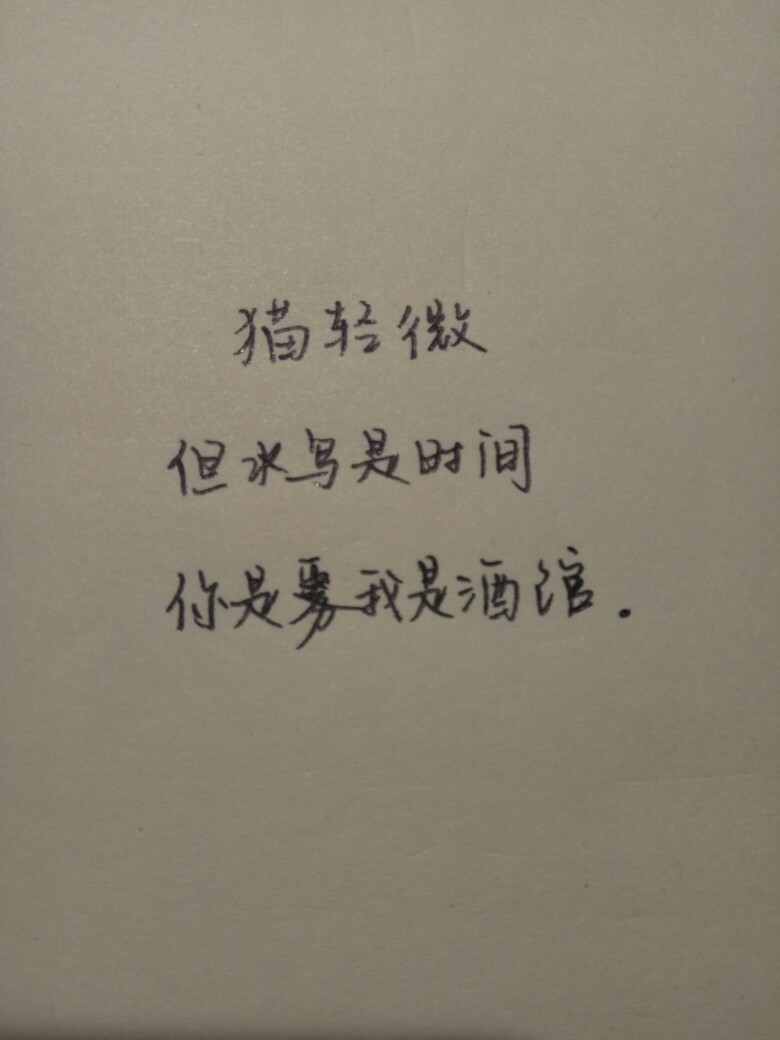 猫轻微
但水鸟是时间
你是雾我是酒馆.